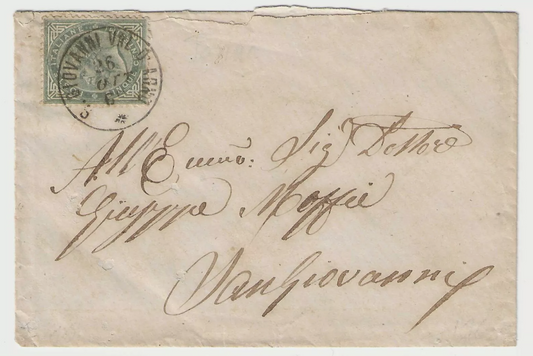 S. GIOVANNI VALDARNO
26
OTT
All'Eccmo: Sigr Dottore
Giuseppe Maffei
San Giovanni